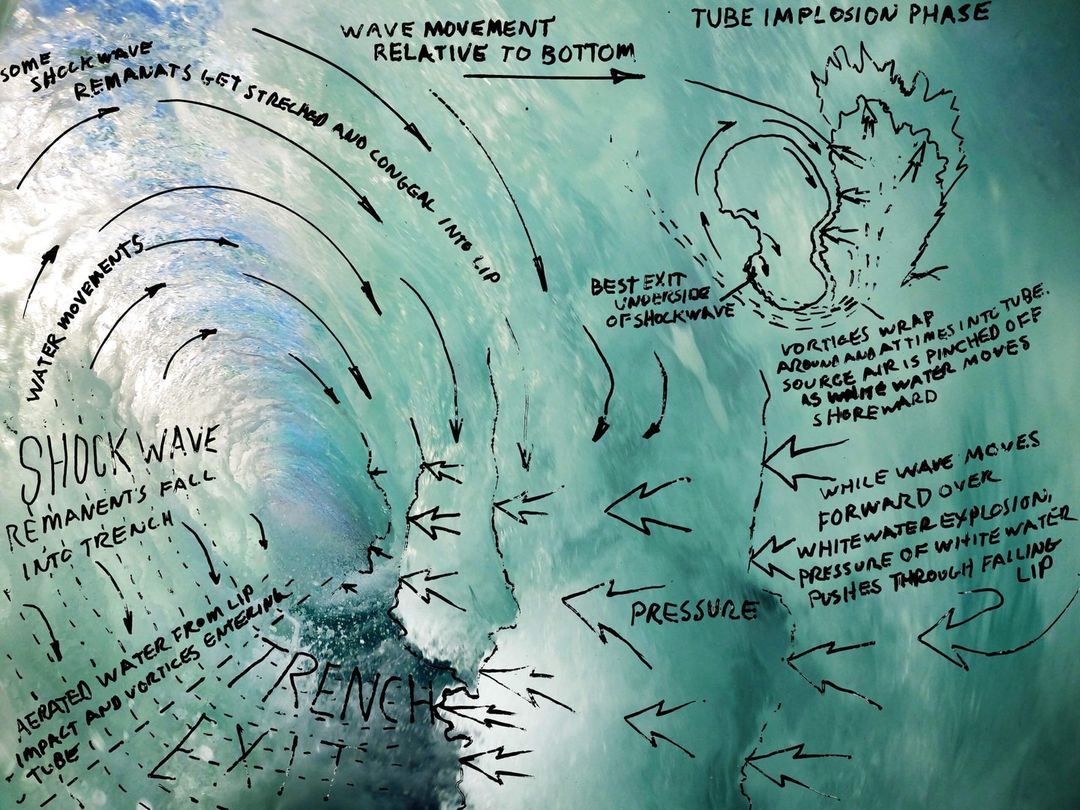 WAVE MOVEMENT
RELATIVE TO BOTTOM
TUBE IMPLOSION PHASE
SOME
SHOCKWAVE
REMANATS GET STRECHED AND CONGEAL INTO LIP
WATER MOVEMENTS
BEST EXIT
UNDERSIDE
OF SHOCKWAVE
VORTICES WRAP
AROUND AND AT TIMES INTO TUBE.
SOURCE AIR IS PINCHED OFF
AS WHITE WATER MOVES
SHOREWARD
SHOCKWAVE
REMANENTS FALL
INTO TRENCH
WHILE WAVE MOVES
FORWARD OVER
WHITEWATER EXPLOSION,
PRESSURE OF WHITE WATER
PUSHES THROUGH FALLING
LIP
PRESSURE
AERATED WATER FROM LIP
IMPACT AND VORTICES ENTERING
TUBE
TRENCH
EXIT